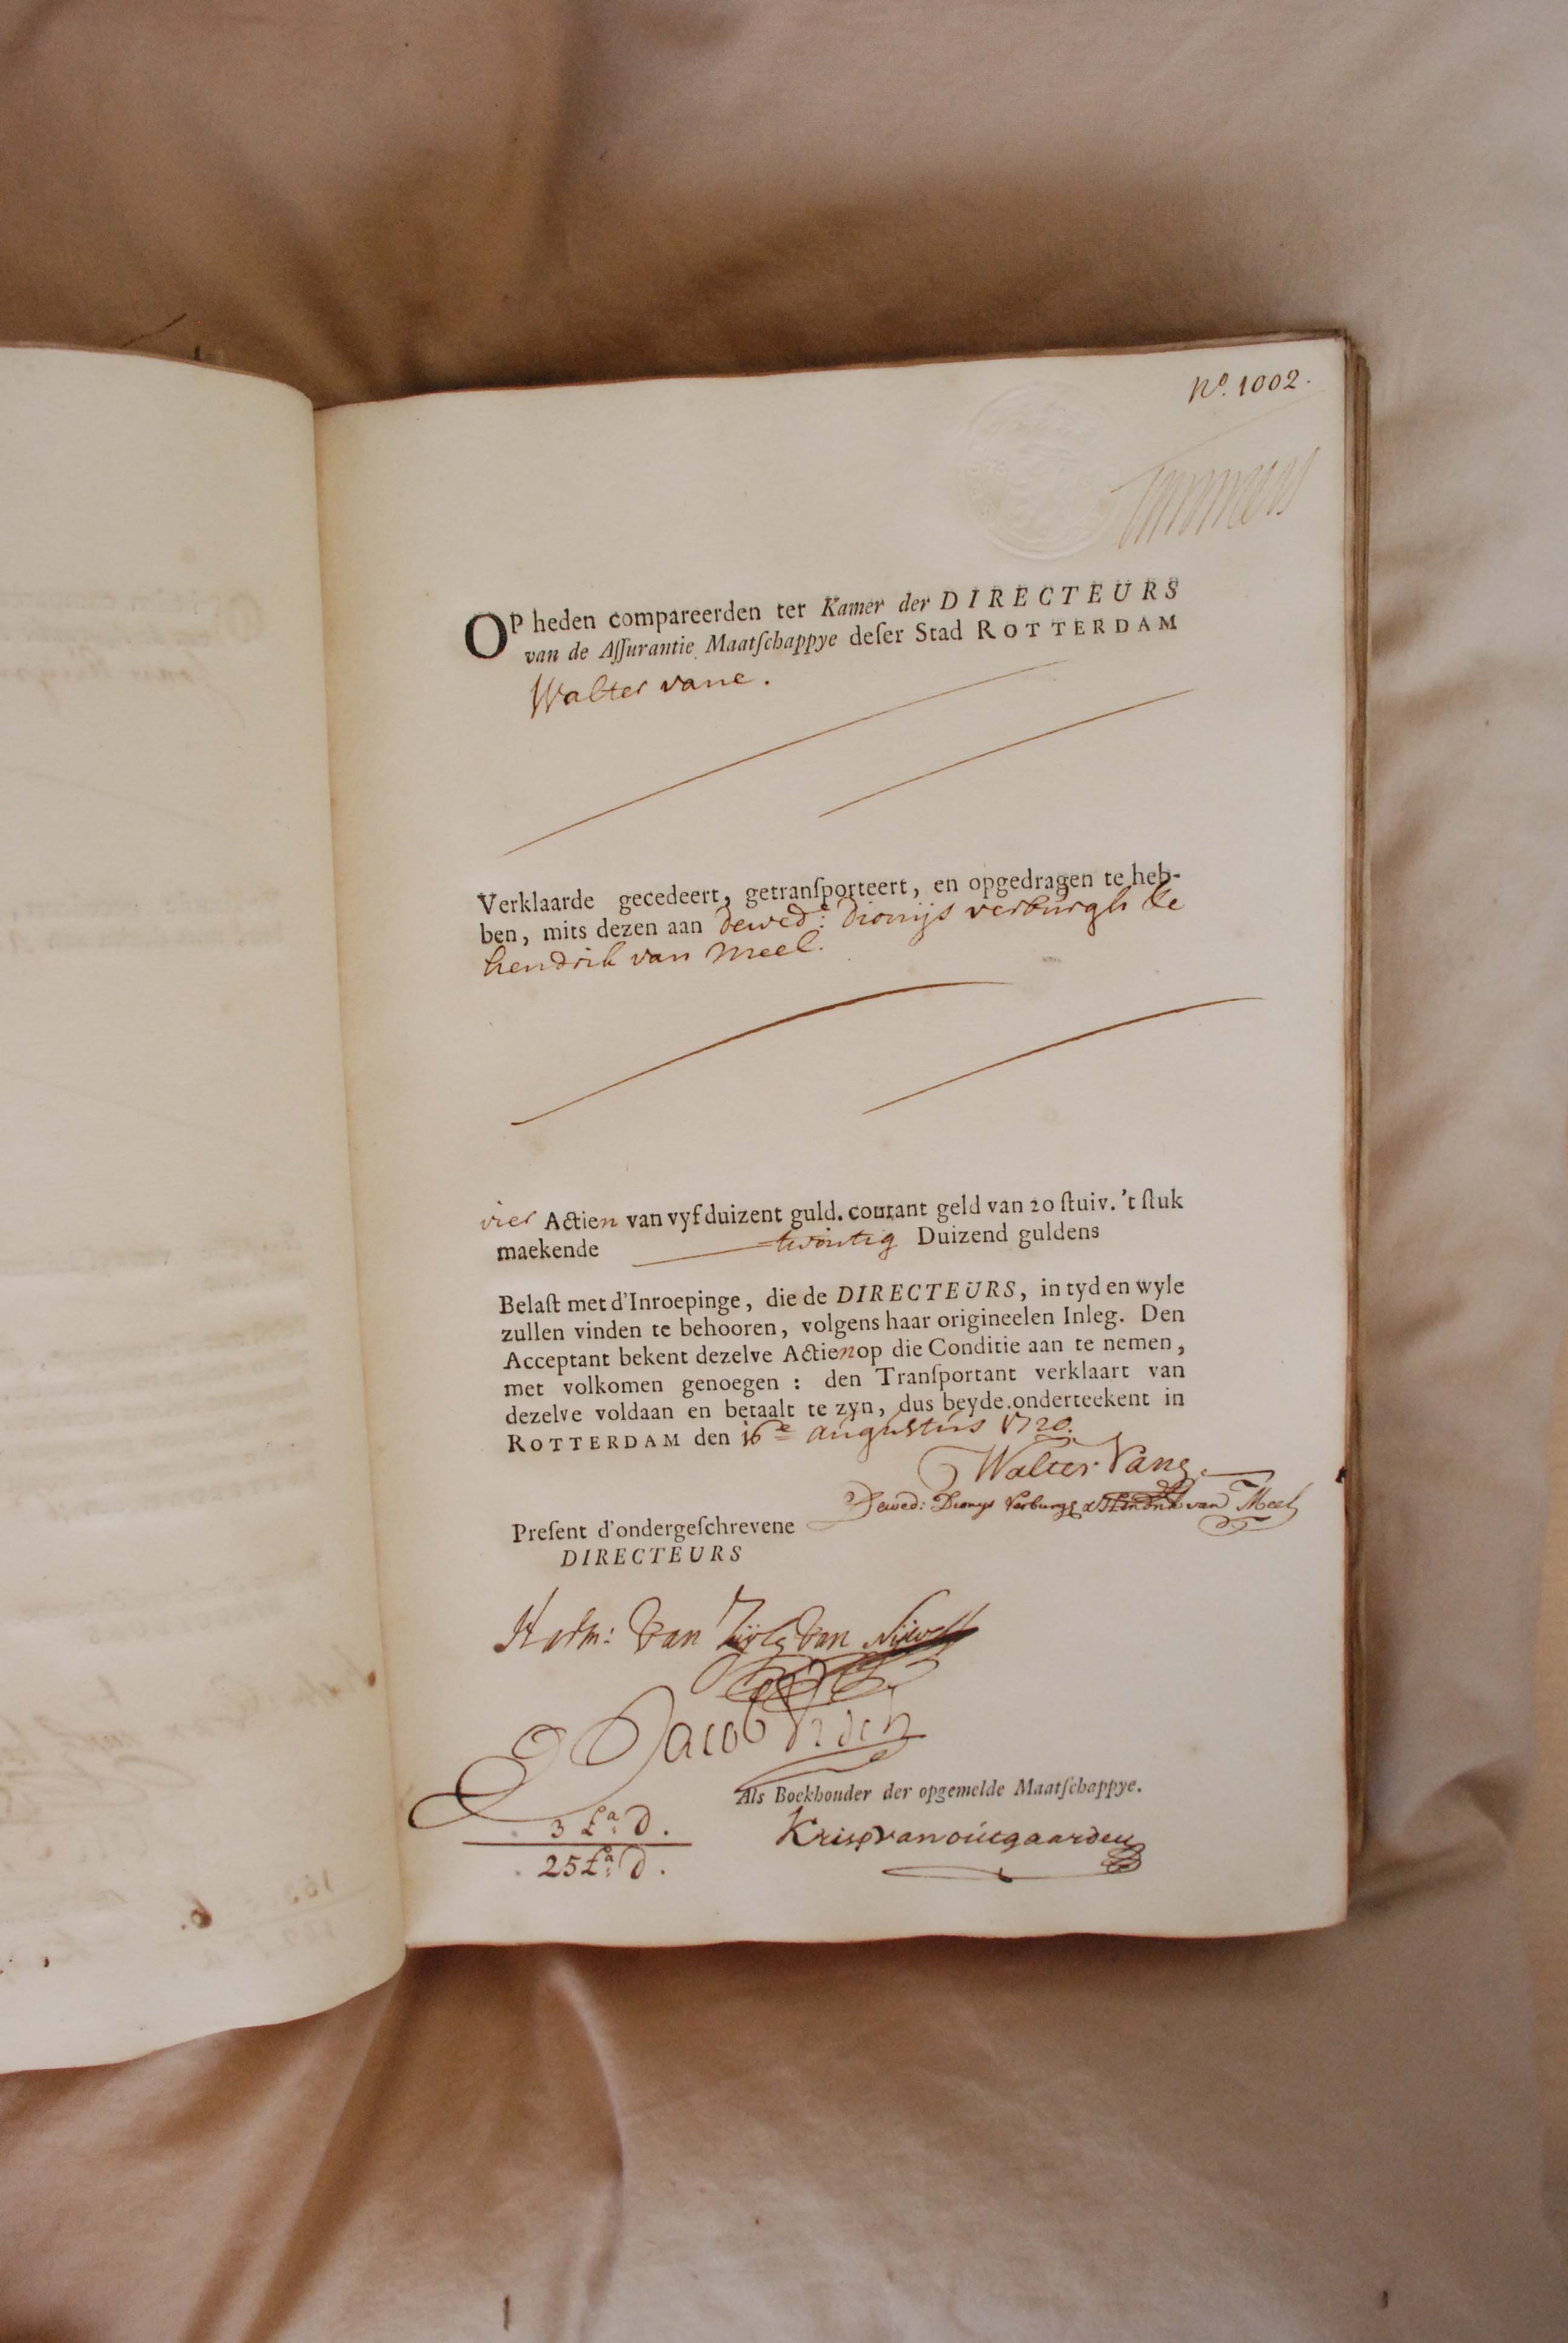 No. 1002.
OP heden compareerden ter Kamer der DIRECTEURS
van de Aſſurantie Maatſchappye deſer Stad ROTTERDAM
Walter vane.
Verklaarde gecedeert, getranſporteert, en opgedragen te heb-
ben, mits dezen aan dewede: Dionijs verburgh &
hendrik van Meel.
vier Actien van vyf duizent guld. courant geld van 20 ſtuiv. 't ſtuk
maekende twintig Duizend guldens
Belaſt met d'Inroepinge, die de DIRECTEURS, in tyd en wyle
zullen vinden te behooren, volgens haar origineelen Inleg. Den
Acceptant bekent dezelve Actien op die Conditie aan te nemen,
met volkomen genoegen : den Tranſportant verklaart van
dezelve voldaan en betaalt te zyn, dus beyde onderteekent in
ROTTERDAM den 16e augustus 1720.
Walter Vane
Dewed: Dionys Verburgh & Hendrik van Meel
Preſent d'ondergeſchrevene
DIRECTEURS
Harm: van Zuylen van Nijvelt
Jacob
Als Boekhouder der opgemelde Maatſchappye.
3 La: D.
Krisp van outgaarden
25 La: D.